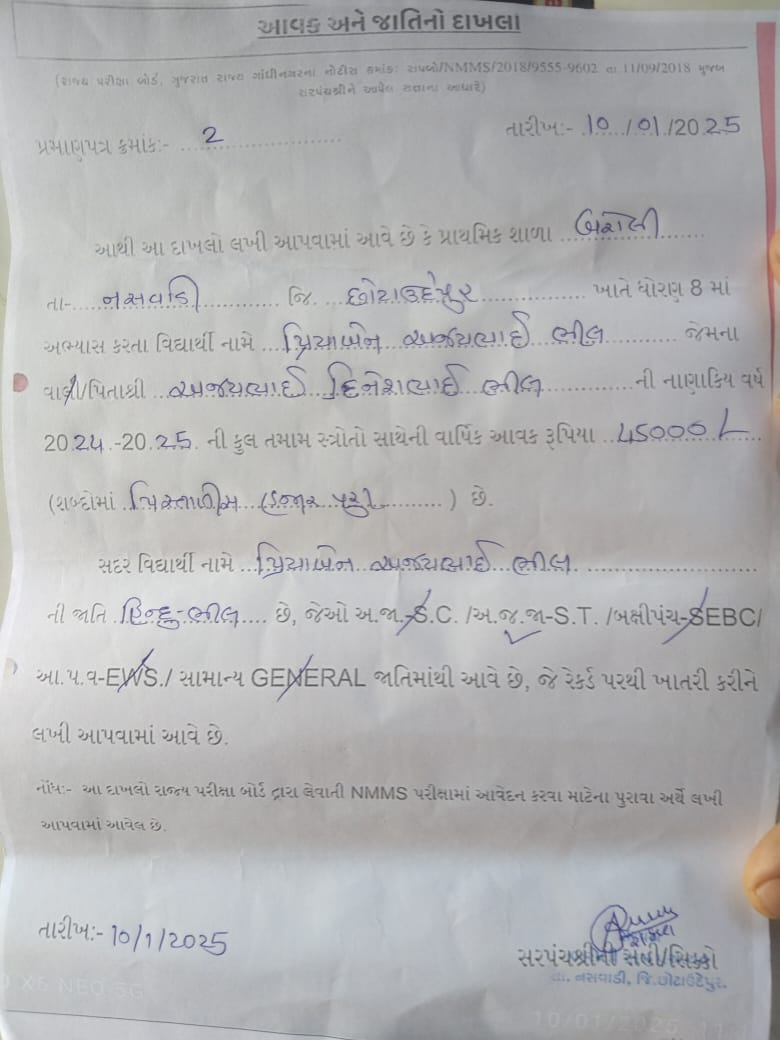 આવક અને જાતિનો દાખલા
(રાજ્ય પરીક્ષા બોર્ડ, ગુજરાત રાજ્ય ગાંધીનગરના નોટીસ ક્રમાંક: રાપબો/NMMS/2018/9555-9602 તા 11/09/2018 મુજબ
સરપંચશ્રીને આપેલ સત્તાના આધારે)
તારીખ:- 10/01/2025
પ્રમાણપત્ર ક્રમાંક:- 2
આથી આ દાખલો લખી આપવામાં આવે છે કે પ્રાથમિક શાળા
તા- નસવાડી જિ. છોટાઉદેપુર ખાતે ધોરણ 8 માં
અભ્યાસ કરતા વિદ્યાર્થી નામે પ્રિયાબેન અજયભાઈ ભીલ જેમના
વાલી/પિતાશ્રી અજયભાઈ દિનેશભાઈ ભીલ ની નાણાકિય વર્ષ
2024-2025 ની કુલ તમામ સ્ત્રોતો સાથેની વાર્ષિક આવક રૂપિયા 45000/-
(શબ્દોમાં પિસ્તાળીસ હજાર પુરા) છે.
સદર વિદ્યાર્થી નામે પ્રિયાબેન અજયભાઈ ભીલ
ની જાતિ હિન્દુ-ભીલ છે, જેઓ અ.જા.-S.C. /અ.જ.જા-S.T. /બક્ષીપંચ-SEBC/
આ.પ.વ-EWS./ સામાન્ય GENERAL જાતિમાંથી આવે છે, જે રેકર્ડ પરથી ખાતરી કરીને
લખી આપવામાં આવે છે.
નોંધ:- આ દાખલો રાજ્ય પરીક્ષા બોર્ડ દ્વારા લેવાતી NMMS પરીક્ષામાં આવેદન કરવા માટેના પુરાવા અર્થે લખી
આપવામાં આવેલ છે.
તારીખ:- 10/1/2025
સરપંચશ્રીની સહી/સિક્કો
તા. નસવાડી, જિ.છોટાઉદેપુર.
X6 NEO 5G
10/01/2025 11